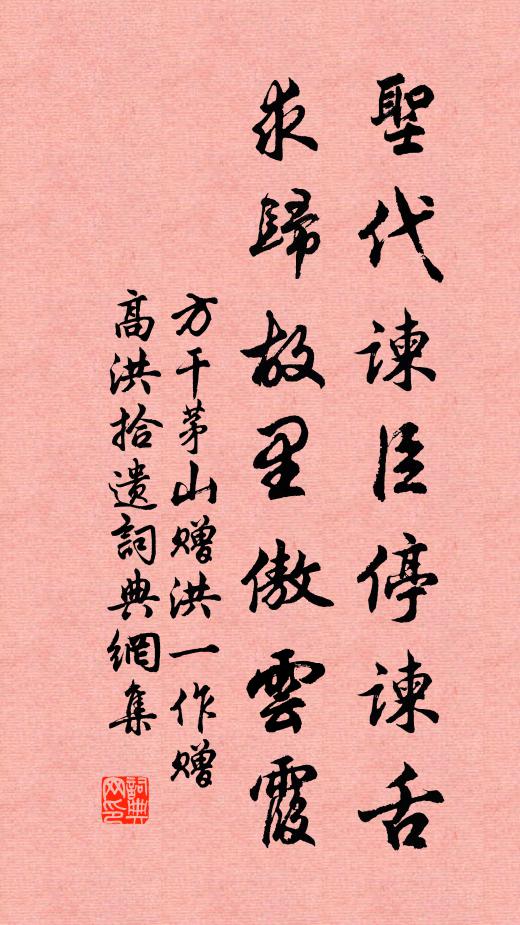 聖代諫臣停諫舌
求歸故里傲雲霞
方干茅山贈洪一作贈
高洪拾遺詞典網集
詞典网印